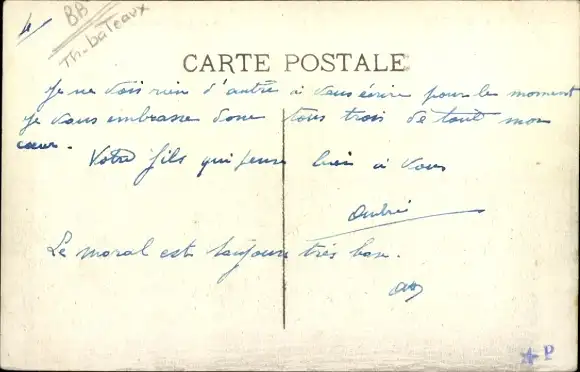 4
BA
Th-bateaux
CARTE POSTALE
Je ne vois rien d'autre à vous écrire pour le moment
Je vous embrasse donc tous trois de tout mon
cœur.
Votre fils qui pense bien à vous
André
Le moral est toujours très bon.
P